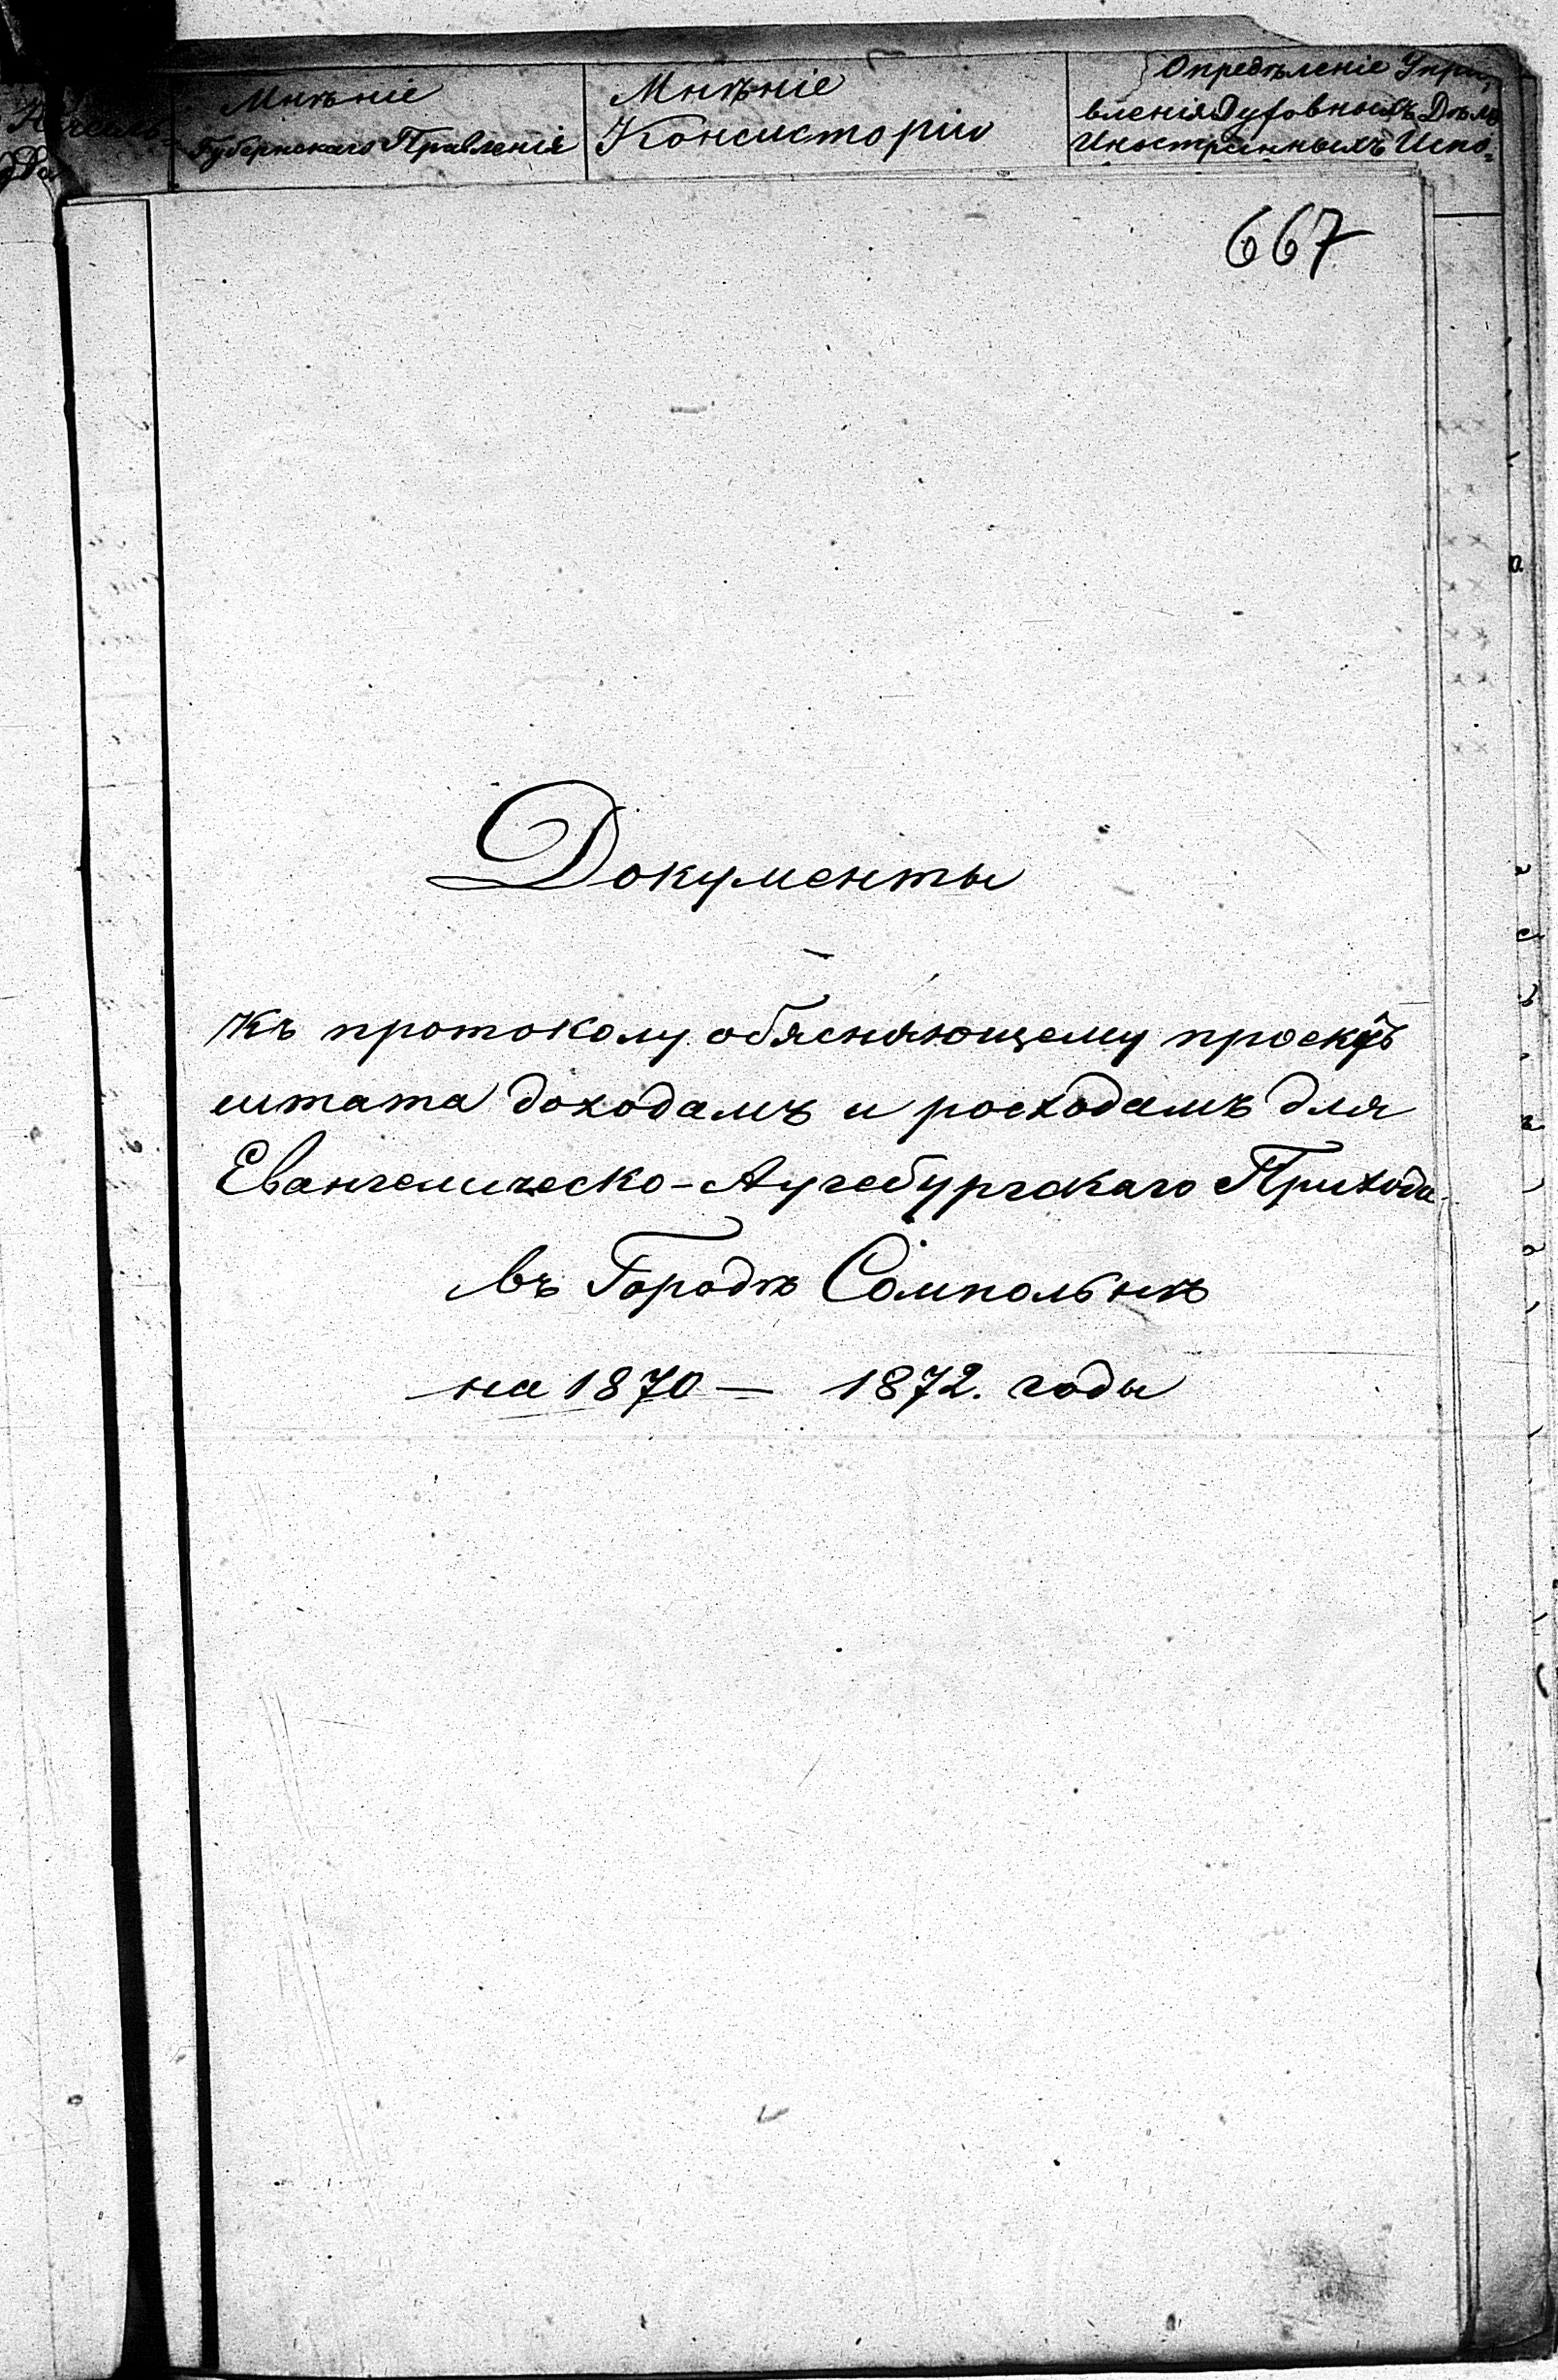 Мнѣніе
Губернскаго Правленія
Мнѣніе
Консисторіи
Опредѣленіе Упра
вленія Духовныхъ Дѣлъ
Иностранныхъ Испо-
667
Документы
Къ протоколу обясняющему проектъ
штата доходамъ и росходамъ для
Евангелическо-Аугсбургскаго Прихода
въ Городѣ Сомпольнѣ
на 1870 — 1872. годы